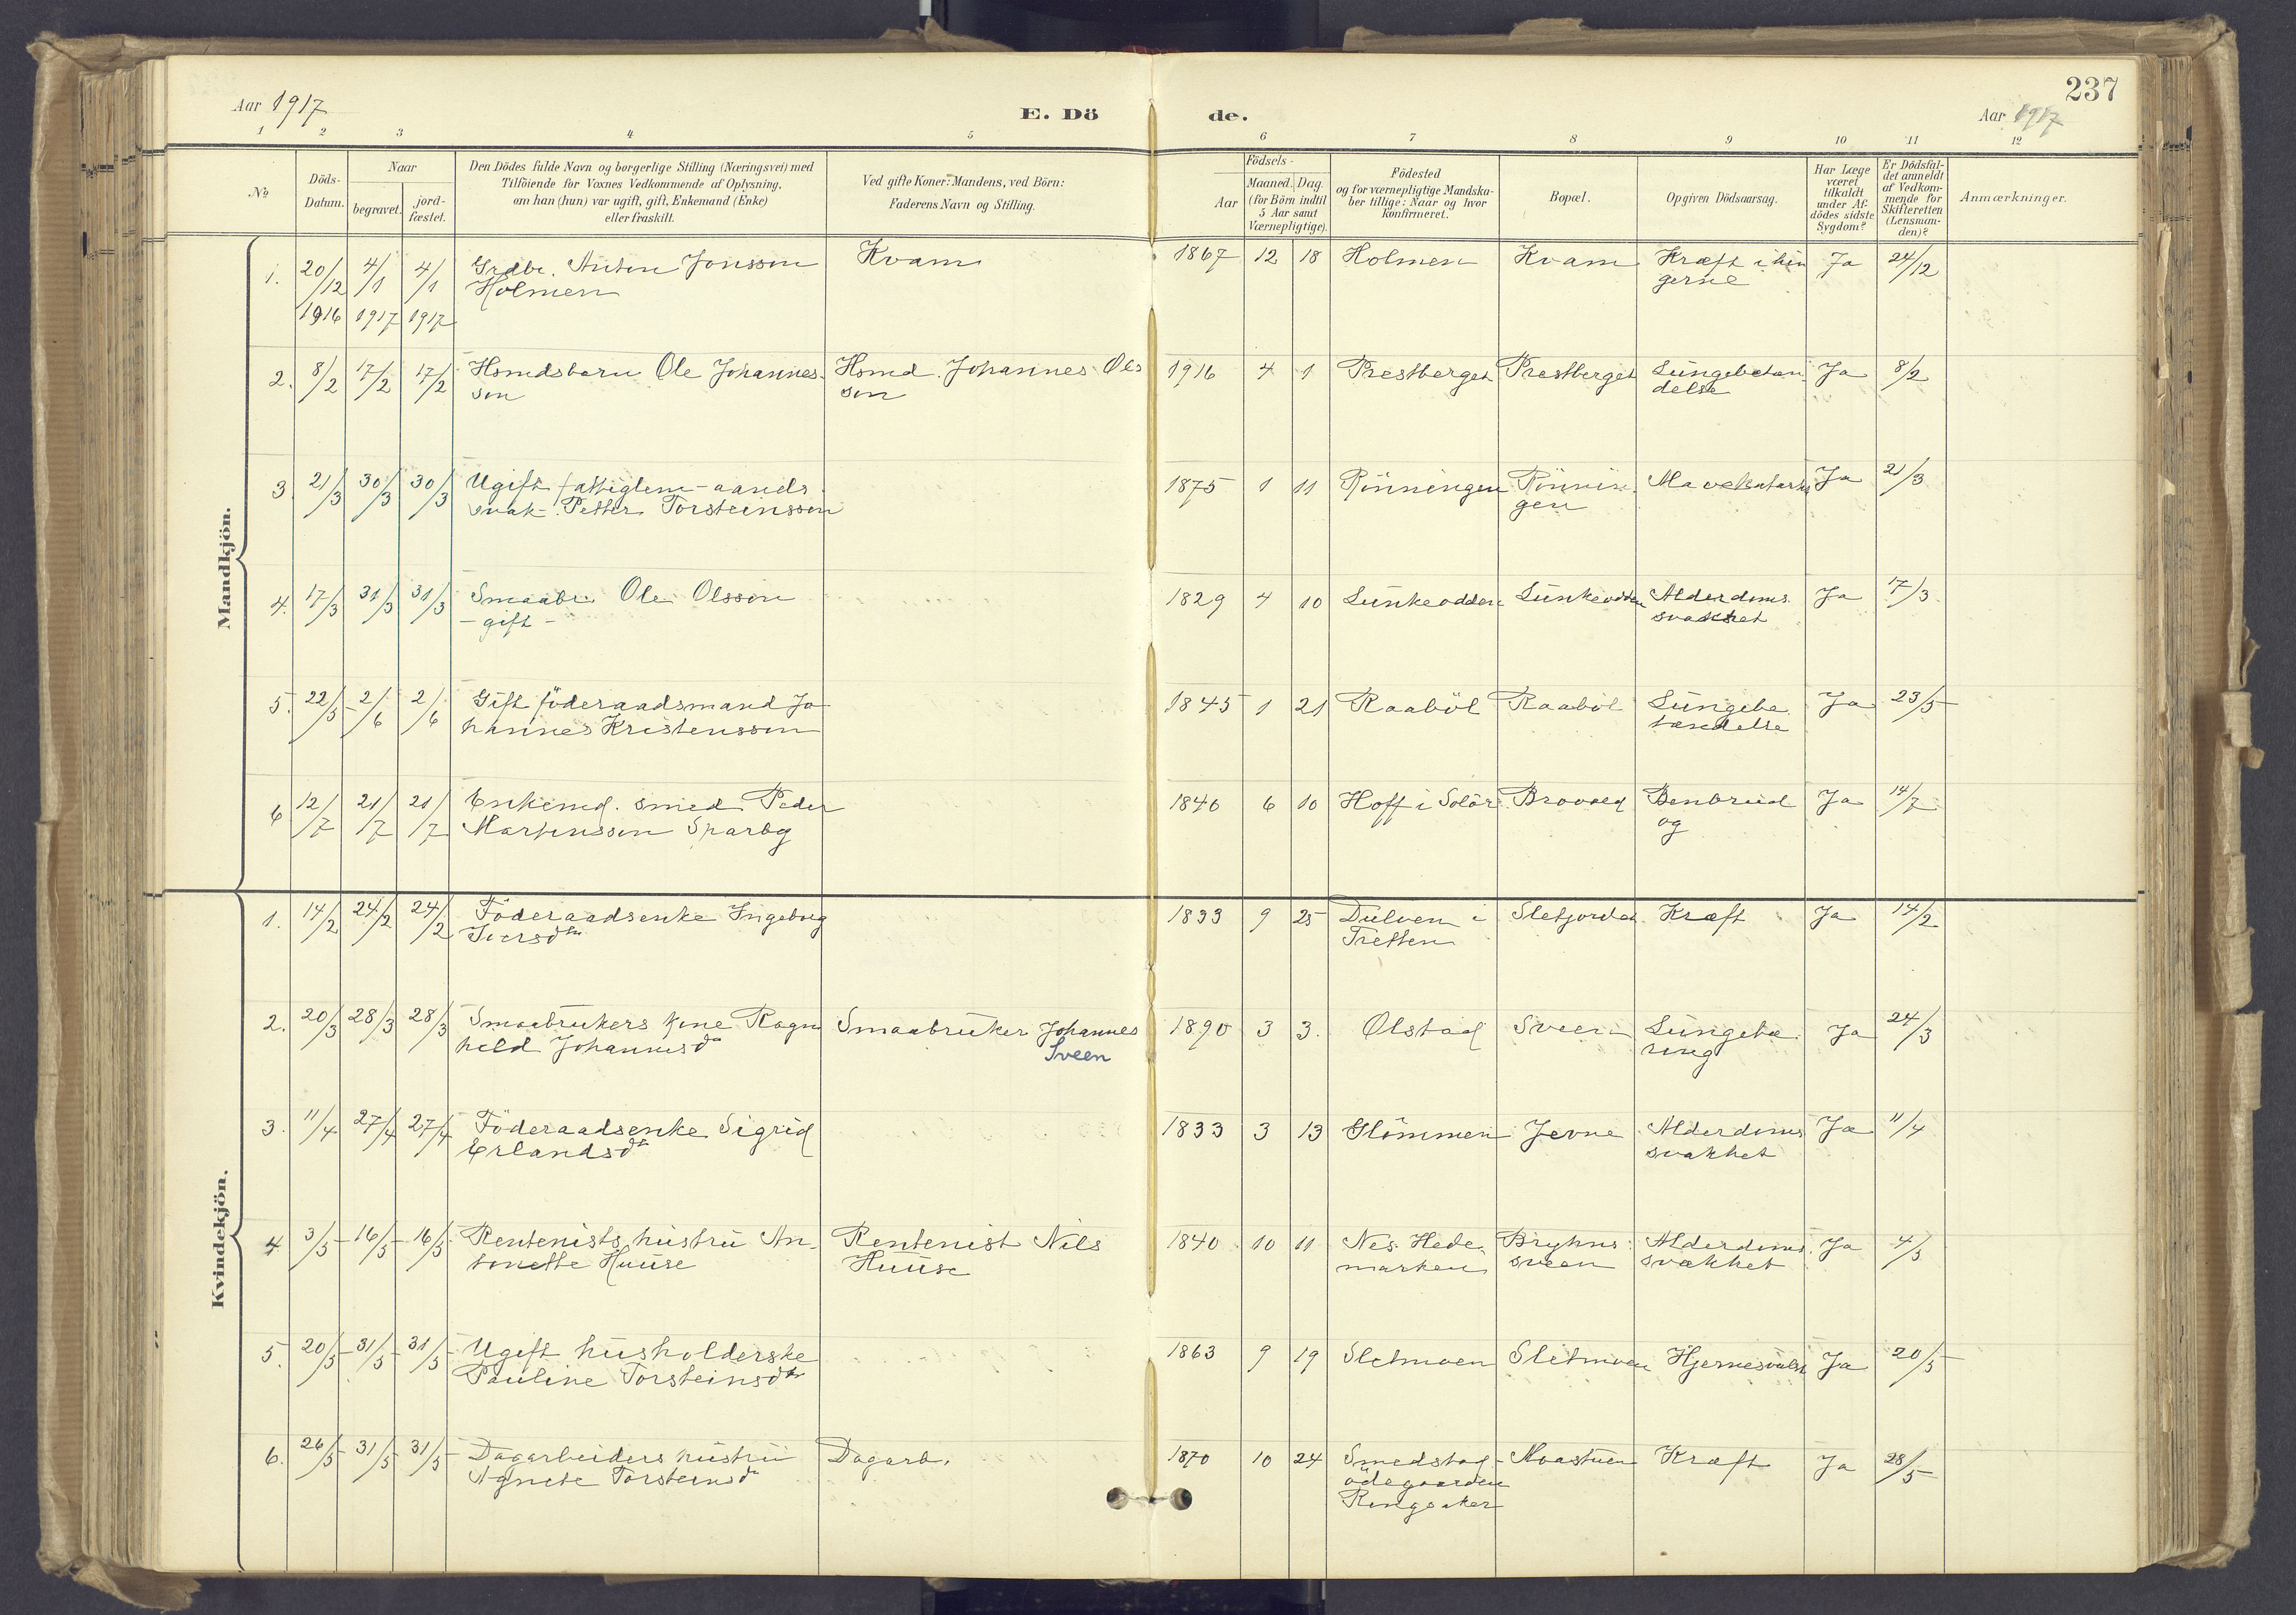 237
Aar 1917
E. Dö
de.
Aar 1917
1 2 3 4 5 6 7 8 9 10 11 12
No
Döds-
Datum.
Naar
begravet.
jord-
fæstet.
Den Dödes fulde Navn og borgerlige Stilling (Næringsvei) med
Tilföiende for Voxnes Vedkommende af Oplysning,
om han (hun) var ugift, gift, Enkemand (Enke)
eller fraskilt.
Ved gifte Koner: Mandens, ved Börn:
Faderens Navn og Stilling.
Födsels-
Aar
Maaned. Dag.
(for Börn indtil
5 Aar samt
Værnepligtige).
Födested
og for værnepligtige Mandska-
ber tillige: Naar og hvor
konfirmeret.
Bopæl.
Opgiven Dödsaarsag.
Har Læge
været
tilkaldt
under Af-
dödes sidste
Sygdom?
Er Dödsfal-
det anmeldt
af Vedkom-
mende for
Skifteretten
(Lensman-
den)?
Anmærkninger.
Mandkjön.
1. 20/12 4/1 4/1 Grdbr. Anton Jonsson Kvam 1867 12 18 Holmen Kvam Kræft i Ja 24/12
Holmen
1916 1917 1917
2. 8/2 17/2 17/2 Hsmdsbarn Ole Johannes- Hsmd. Johannes Ols 1916 4 1 Prestberget Prestberget Lungebetæn Ja 8/2
son son delse
3. 21/3 30/3 30/3 Ugift fattiglem - aands 1875 1 11 Rönningen Rönnin Mavekatarh Ja 21/3
svak - Petter Torsteinsson gen
4. 17/3 31/3 31/3 Smaabr. Ole Olsson 1829 4 10 Lunkeodden Lunkeodden Alderdoms Ja 17/3
- gift - svakhet
5. 22/5 2/6 2/6 Gift föderaadsmand Jo 1845 1 21 Raaböl Raaböl Lungebe Ja 23/5
hannes Kristensson tændelse
6 12/7 21/7 21/7 Enkemd. smed Peder 1846 6 10 Hoff i Solör Brovold Benbrud Ja 14/7
Martinsson Sparby og
Kvindekjön.
1. 14/2 24/2 24/2 Föderaadsenke Ingeborg 1833 9 25 Dulven i Sletjordet Kræft Ja 14/2
Iversdtr Tretten
2. 20/3 28/3 28/3 Smaabrukers kone Ragn Smaabruker Johannes 1890 3 3. Olstad Sveen Lungebe Ja 24/3
hild Johannesdr Sveen
3. 11/4 27/4 27/4 Föderaadsenke Sigrid 1833 3 13 Glömmen Jevne Alderdoms Ja 11/4
Erlandsdtr svakhet
4 3/5 16/5 16/5 Rentenists hustru An- Rentenist Nils 1840 10 11 Nes Hede- Bryhns Alderdoms Ja 4/5
tonette Huuse Huuse marken sveen svakhet
5. 20/5 31/5 31/5 Ugift husholderske 1863 9 19 Sletmoen Sletmoen Hjernesvulst Ja 20/5
Pauline Torsteinsdtr
6. 26/5 31/5 31/5 Dagarbeiders hustru Dagarb. 1870 10 24 Smedstad- Moastuen Kræft Ja 28/5
Agnete Torsteinsdr ödegaarden
Ringsaker